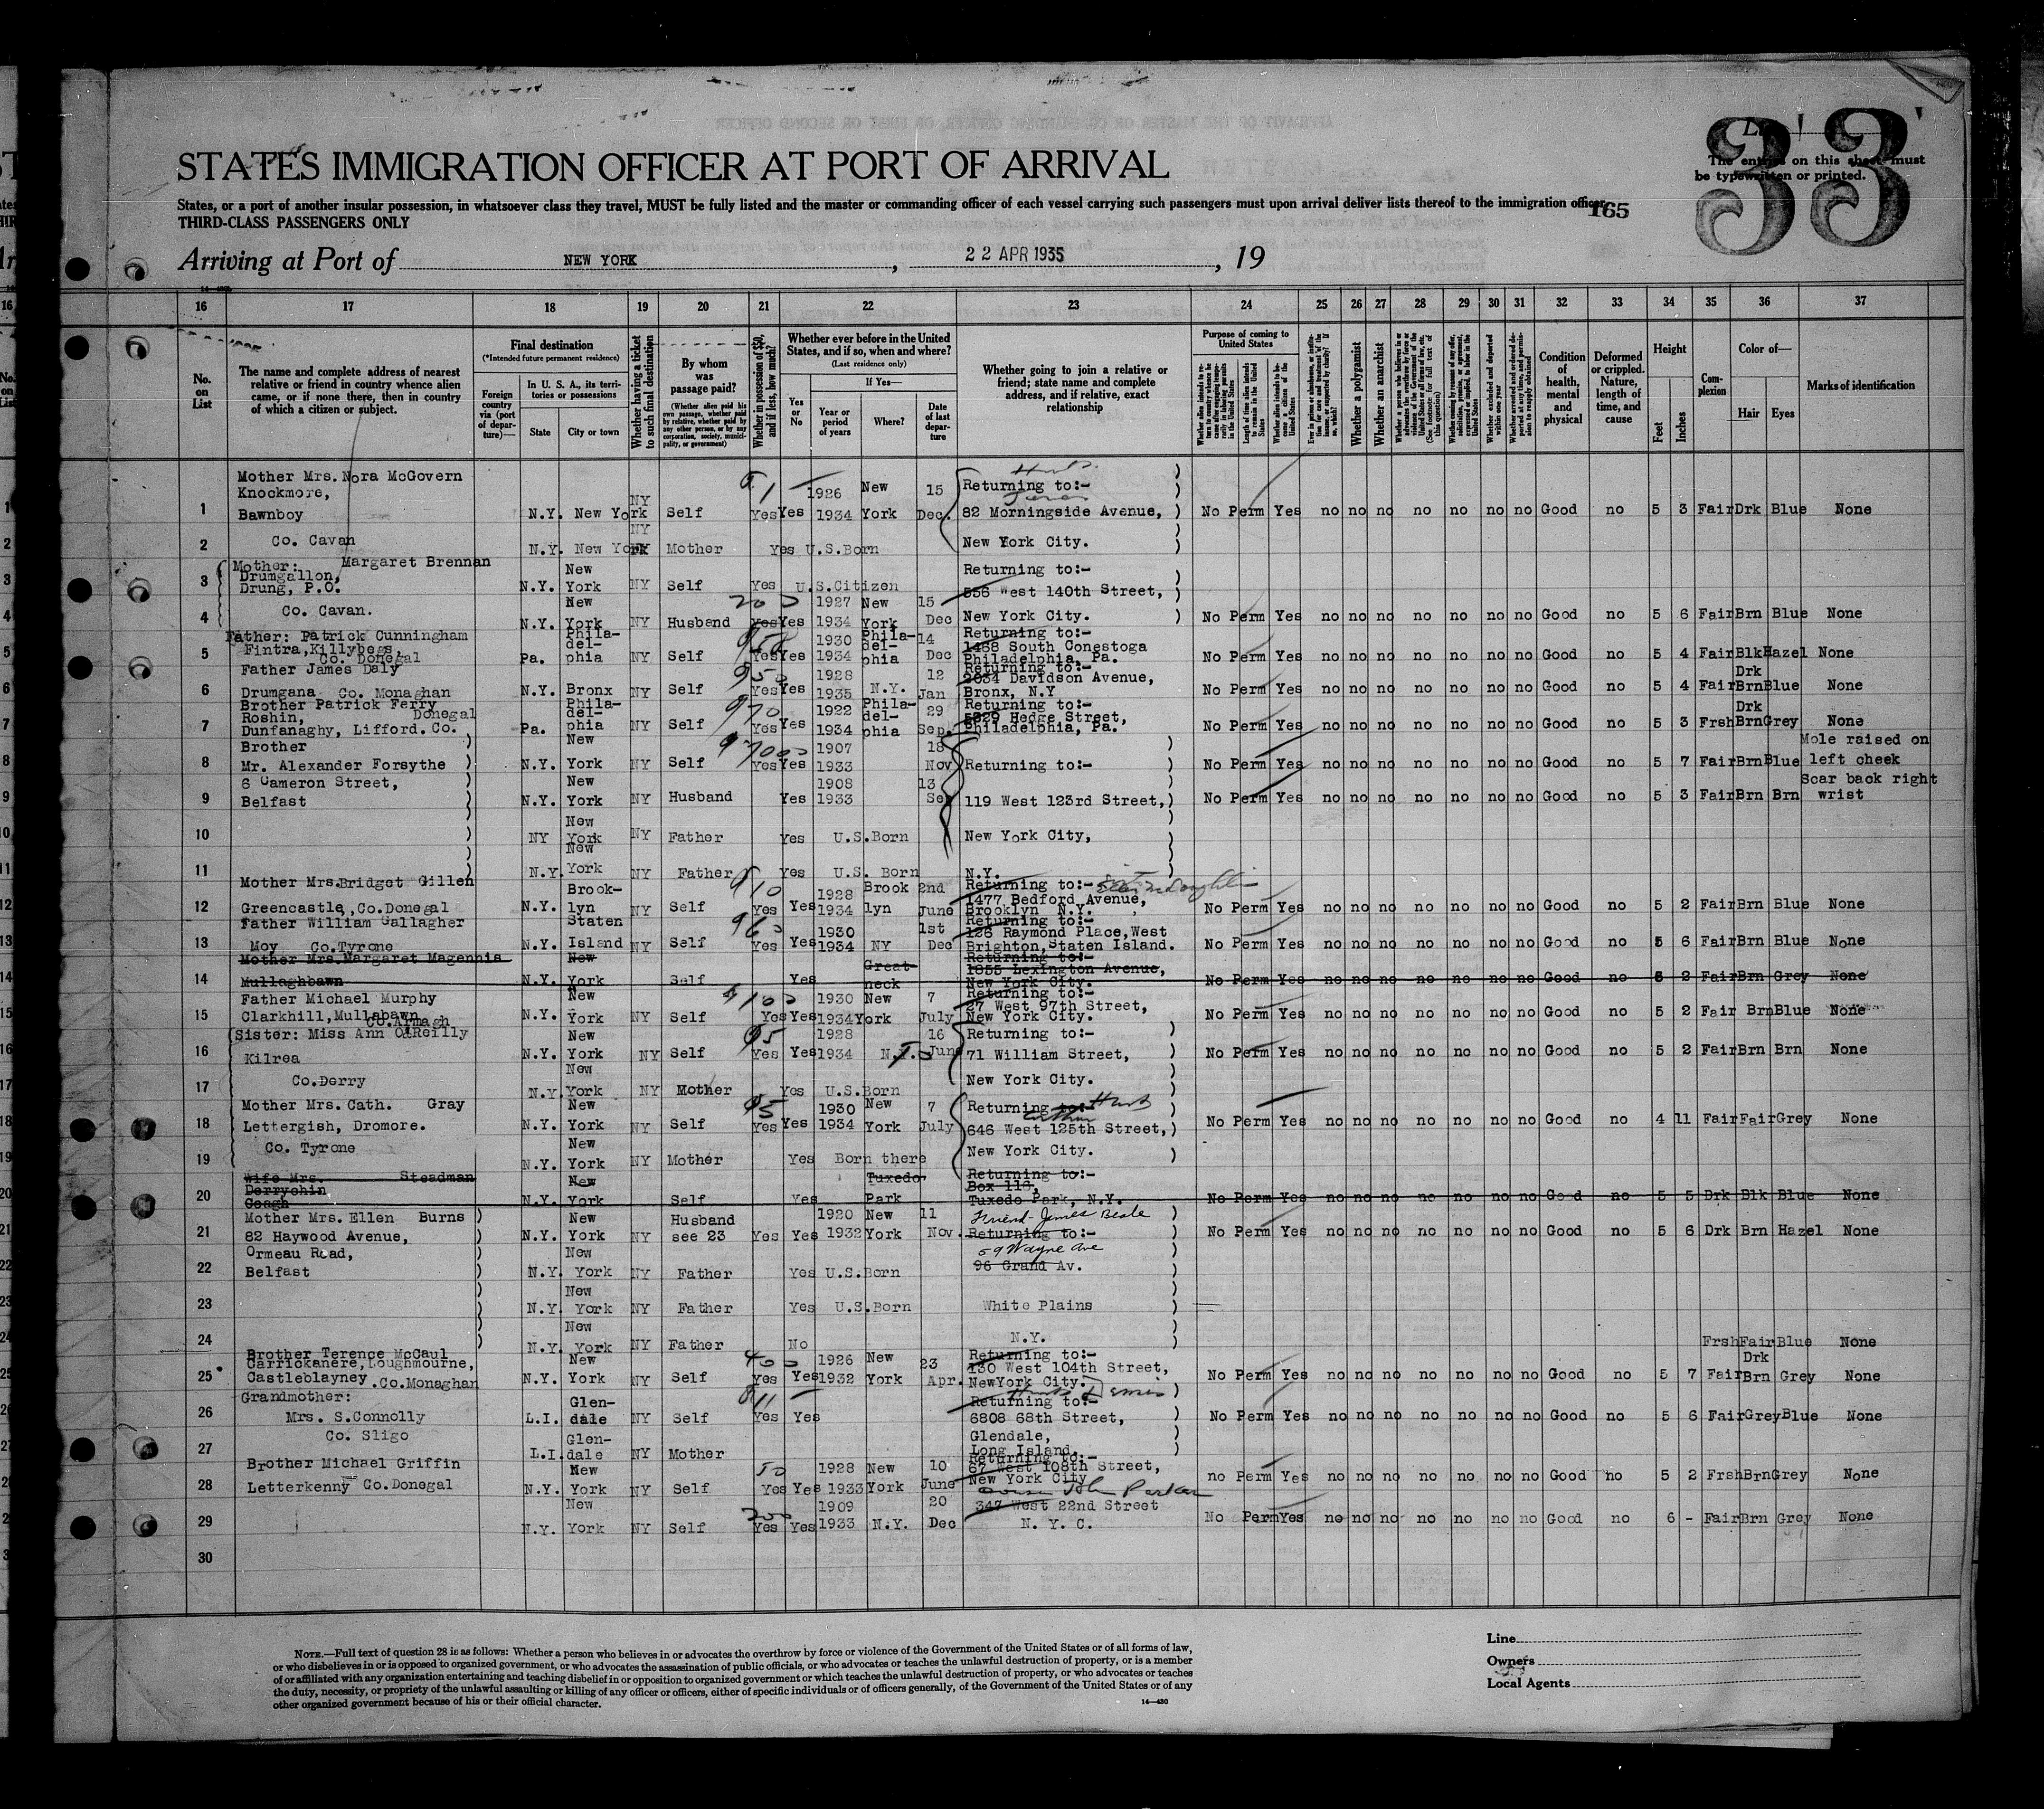 33
The entries on this sheet must
be typewritten or printed.
STATES IMMIGRATION OFFICER AT PORT OF ARRIVAL
States, or a port of another insular possession, in whatsoever class they travel, MUST be fully listed and the master or commanding officer of each vessel carrying such passengers must upon arrival deliver lists thereof to the immigration officer
165
THIRD-CLASS PASSENGERS ONLY
Arriving at Port of NEW YORK, 22 APR 1935, 19
16 17 18 19 20 21 22 23 24 25 26 27 28 29 30 31 32 33 34 35 36 37
No. on List
The name and complete address of nearest relative or friend in country whence alien came, or if none there, then in country of which a citizen or subject.
Final destination
(*Intended future permanent residence)
Foreign country via (port of departure)—
In U. S. A., its territories or possessions
State City or town
Whether having a ticket to such final destination
By whom was passage paid?
(Whether alien paid his own passage, whether paid by relative, whether paid by any other person, or by any corporation, society, municipality, or government)
Whether in possession of $50, and if less, how much?
Whether ever before in the United States, and if so, when and where?
(Last residence only)
Yes or No
If Yes—
Year or period of years Where? Date of last departure
Whether going to join a relative or friend; state name and complete address, and if relative, exact relationship
Purpose of coming to United States
Whether a polygamist
Whether an anarchist
Condition of health, mental and physical
Deformed or crippled. Nature, length of time, and cause
Height
Feet Inches
Complexion
Color of—
Hair Eyes
Marks of identification
Mother Mrs. Nora McGovern
Knockmore, 1926 New 15 Returning to:-
1 Bawnboy N.Y. New York NY Self Yes Yes 1934 York Dec. 82 Morningside Avenue, No Perm Yes no no no no no no no Good no 5 3 Fair Drk Blue None
2 Co. Cavan N.Y. New York NY Mother Yes U.S.Born New York City.
Mother: Margaret Brennan
Drumgallon, New Returning to:-
3 Drung, P.O. N.Y. York NY Self Yes U.S.Citizen 556 West 140th Street,
New 200 1927 New 15
4 Co. Cavan. N.Y. York NY Husband Yes Yes 1934 York Dec New York City. No Perm Yes no no no no no no no Good no 5 6 Fair Brn Blue None
Father: Patrick Cunningham Phila- 1930 Phila- 14 Returning to:-
5 Fintra, Killybegs, del- del- 1468 South Conestoga
Co. Donegal Pa. phia NY Self Yes Yes 1934 phia Dec Philadelphia, Pa. No Perm Yes no no no no no no no Good no 5 4 Fair Blk Hazel None
Father James Daly 1928 12 Returning to:- Drk
2634 Davidson Avenue,
6 Drumgana Co. Monaghan N.Y. Bronx NY Self Yes Yes 1935 N.Y. Jan Bronx, N.Y No Perm Yes no no no no no no no Good no 5 4 Fair Brn Blue None
Brother Patrick Ferry Phila- 1922 Phila- 29 Returning to:- Drk
Roshin, Donegal del- del- 5829 Hedge Street,
7 Dunfanaghy, Lifford. Co. Pa. phia NY Self Yes Yes 1934 phia Sep. Philadelphia, Pa. No Perm Yes no no no no no no no Good no 5 3 Frsh Brn Grey None
Brother New 1907 18 Mole raised on
8 Mr. Alexander Forsythe N.Y. York NY Self Yes Yes 1933 Nov Returning to:- No Perm Yes no no no no no no no Good no 5 7 Fair Brn Blue left cheek
6 Cameron Street, New 1908 13 Scar back right
9 Belfast N.Y. York NY Husband Yes 1933 Sep 119 West 123rd Street, No Perm Yes no no no no no no no Good no 5 3 Fair Brn Brn wrist
New
10 NY York NY Father Yes U.S.Born New York City,
New
11 N.Y. York NY Father Yes U.S. Born N.Y.
Mother Mrs.Bridget Gillen Brook- 1928 Brook 2nd Returning to:-
1477 Bedford Avenue,
12 Greencastle, Co.Donegal N.Y. lyn NY Self Yes Yes 1934 lyn June Brooklyn N.Y. No Perm Yes no no no no no no no Good no 5 2 Fair Brn Blue None
Father William Gallagher Staten 1930 1st Returning to:-
126 Raymond Place,West
13 Moy Co.Tyrone N.Y. Island NY Self Yes Yes 1934 NY Dec Brighton,Staten Island. No Perm Yes no no no no no no no Good no 5 6 Fair Brn Blue None
Mother Mrs.Margaret Magennis New Great Returning to:-
1055 Lexington Avenue,
14 Mullaghbawn N.Y. York Self Yes neck New York City. No Perm Yes no no no no no no no Good no 5 2 Fair Brn Grey None
Father Michael Murphy New 100 1930 New 7 Returning to:-
27 West 97th Street,
15 Clarkhill,Mullabawn N.Y. York NY Self Yes Yes 1934 York July New York City. No Perm Yes no no no no no no no Good no 5 2 Fair Brn Blue None
Co.Armagh
Sister: Miss Ann O'Reilly New 1928 16 Returning to:-
16 Kilrea N.Y. York NY Self Yes Yes 1934 N.J. June 71 William Street, No Perm Yes no no no no no no no Good no 5 2 Fair Brn Brn None
New
17 Co.Derry N.Y. York NY Mother Yes U.S.Born New York City.
Mother Mrs. Cath. Gray New 1930 New 7 Returning to:-
18 Lettergish, Dromore. N.Y. York NY Self Yes Yes 1934 York July 646 West 125th Street, No Perm Yes no no no no no no no Good no 4 11 Fair Fair Grey None
Co. Tyrone New New York City.
19 N.Y. York NY Mother Yes Born there
Wife Mrs. Steadman New Tuxedo Returning to:-
Derrychin Box 118,
20 Coagh N.Y. York Self Yes Park Tuxedo Park, N.Y. No Perm Yes no no no no no no no Good no 5 5 Drk Blk Blue None
Mother Mrs. Ellen Burns New Husband 1920 New 11 Friend-James Beale
21 82 Haywood Avenue, N.Y. York NY see 23 Yes Yes 1932 York Nov. Returning to:- No Perm Yes no no no no no no no Good no 5 6 Drk Brn Hazel None
Ormeau Road, New 59 Wayne Ave
22 Belfast N.Y. York NY Father Yes U.S.Born 96 Grand Av.
New
23 N.Y. York NY Father Yes U.S.Born White Plains
New
24 N.Y. York NY Father No N.Y. Frsh Fair Blue None
Brother Terence McCaul New 400 1926 New 23 Returning to:- Drk
Carrickanere, Loughmourne, 130 West 104th Street,
25 Castleblayney .Co.Monaghan N.Y. York NY Self Yes Yes 1932 York Apr. NewYork City. No Perm Yes no no no no no no no Good no 5 7 Fair Brn Grey None
Grandmother: Glen- Returning to:-
26 Mrs. S.Connolly L.I. dale NY Self Yes Yes 6808 68th Street, No Perm Yes no no no no no no no Good no 5 6 Fair Grey Blue None
Co. Sligo Glen- Glendale,
27 L.I. dale NY Mother Long Island.
Brother Michael Griffin New 50 1928 New 10 Returning to:-
67 West 108th Street,
28 Letterkenny Co.Donegal N.Y. York NY Self Yes Yes 1933 York June New York City no Perm Yes no no no no no no no Good no 5 2 Frsh Brn Grey None
Cousin John Parker
New 200 1909 20 347 West 22nd Street
29 N.Y. York NY Self Yes Yes 1933 N.Y. Dec N. Y. C. No Perm Yes no no no no no no no Good no 6 - Fair Brn Grey None
30
NOTE.—Full text of question 28 is as follows: Whether a person who believes in or advocates the overthrow by force or violence of the Government of the United States or of all forms of law,
or who disbelieves in or is opposed to organized government, or who advocates the assassination of public officials, or who advocates or teaches the unlawful destruction of property, or is a member
of or affiliated with any organization entertaining and teaching disbelief in or opposition to organized government or which teaches the unlawful destruction of property, or who advocates or teaches
the duty, necessity, or propriety of the unlawful assaulting or killing of any officer or officers, either of specific individuals or of officers generally, of the Government of the United States or of any
other organized government because of his or their official character.
14—430
Line
Owners
Local Agents